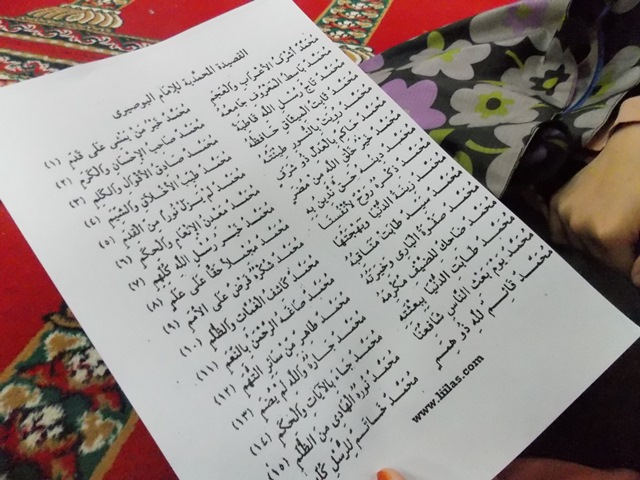 القصيدة المحمدية للإمام البوصيري
مُحَمَّدٌ أَشْرَفُ الأَعْرَابِ وَالْعَجَمِ مُحَمَّدٌ خَيْرُ مَنْ يَمْشِي عَلَى قَدَمِ (١)
مُحَمَّدٌ بَاسِطُ الْمَعْرُوفِ جَامِعُهُ مُحَمَّدٌ صَاحِبُ الإِحْسَانِ وَالْكَرَمِ (٢)
مُحَمَّدٌ تَاجُ رُسْلِ اللهِ قَاطِبَةً مُحَمَّدٌ صَادِقُ الأَقْوَالِ وَالْكَلِمِ (٣)
مُحَمَّدٌ ثَابِتُ الْمِيثَاقِ حَافِظُهُ مُحَمَّدٌ طَيِّبُ الأَخْلَاقِ وَالشِّيَمِ (٤)
مُحَمَّدٌ رُوِيَتْ بِالنُّورِ طِينَتُهُ مُحَمَّدٌ لَمْ يَزَلْ نُورًا مِنَ الْقِدَمِ (٥)
مُحَمَّدٌ حَاكِمٌ بِالْعَدْلِ ذُو شَرَفٍ مُحَمَّدٌ مَعْدِنُ الإِنْعَامِ وَالْحِكَمِ (٦)
مُحَمَّدٌ خَيْرُ خَلْقِ اللهِ مِنْ مُضَرٍ مُحَمَّدٌ خَيْرُ رُسْلِ اللهِ كُلِّهِمِ (٧)
مُحَمَّدٌ دِينُهُ حَقٌّ نَدِينُ بِهِ مُحَمَّدٌ مُجْمِلًا حَقًّا عَلَى عَلَمِ (٨)
مُحَمَّدٌ ذِكْرُهُ رُوحٌ لأَنْفُسِنَا مُحَمَّدٌ شُكْرُهُ فَرْضٌ عَلَى الأُمَمِ (٩)
مُحَمَّدٌ زِينَةُ الدُّنْيَا وَبَهْجَتُهَا مُحَمَّدٌ كَاشِفُ الْغُمَّاتِ وَالظُّلَمِ (١٠)
مُحَمَّدٌ سَيِّدٌ طَابَتْ مَنَاقِبُهُ مُحَمَّدٌ صَاغَهُ الرَّحْمٰنُ بِالنِّعَمِ (١١)
مُحَمَّدٌ صَفْوَةُ الْبَارِي وَخِيرَتُهُ مُحَمَّدٌ طَاهِرٌ مِنْ سَائِرِ التُّهَمِ (١٢)
مُحَمَّدٌ ضَاحِكٌ لِلضَّيْفِ مُكْرِمُهُ مُحَمَّدٌ جَارُهُ وَاللهِ لَمْ يُضَمِ (١٣)
مُحَمَّدٌ طَابَتِ الدُّنْيَا بِبِعْثَتِهِ مُحَمَّدٌ جَاءَ بِالآيَاتِ وَالْحِكَمِ (١٤)
مُحَمَّدٌ يَوْمَ بَعْثِ النَّاسِ شَافِعُنَا مُحَمَّدٌ نُورُهُ الْهَادِي مِنَ الظُّلَمِ (١٥)
مُحَمَّدٌ قَائِمٌ للهِ ذُو هِمَمٍ مُحَمَّدٌ خَاتِمٌ لِلرُّسْلِ
www.liilas.com